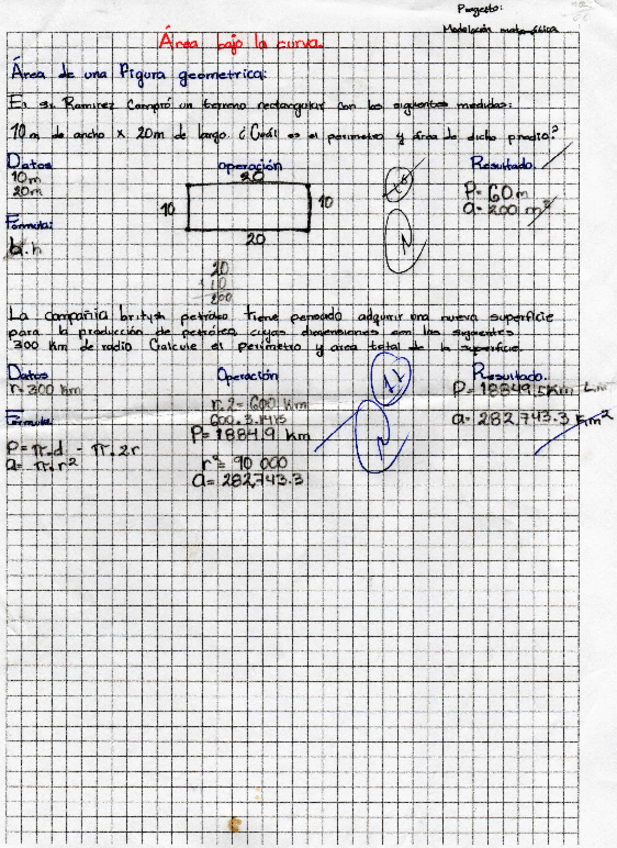 Proyecto:
Modelación matemática
Área bajo la curva.
Área de una figura geometrica:
El sr. Ramirez Compró un terreno rectangular con las siguientes medidas:
10m de ancho x 20m de largo ¿Cuál es el perimetro y área de dicho predio?
Datos operación Resultado.
10m 20 P= 60m
20m 10 10 a= 200 m²
Formula: 20
b.h
20
x 10
200
La compañia britysh petróleo tiene pensado adquirir una nueva superficie
para la producción de petróleo cuyas dimensiones son las siguientes
300 Km de radio Calcule el perímetro y area total de la superficie.
Datos Operación Resultado.
r= 300 km P= 18849.5Km
r.2= 600 Km
Formula: 600. 3.1415 a= 282,743.3 Km²
P= 1884.9 km
P= π.d - π.2r
a= π.r² r²= 90 000
a= 282,743.3